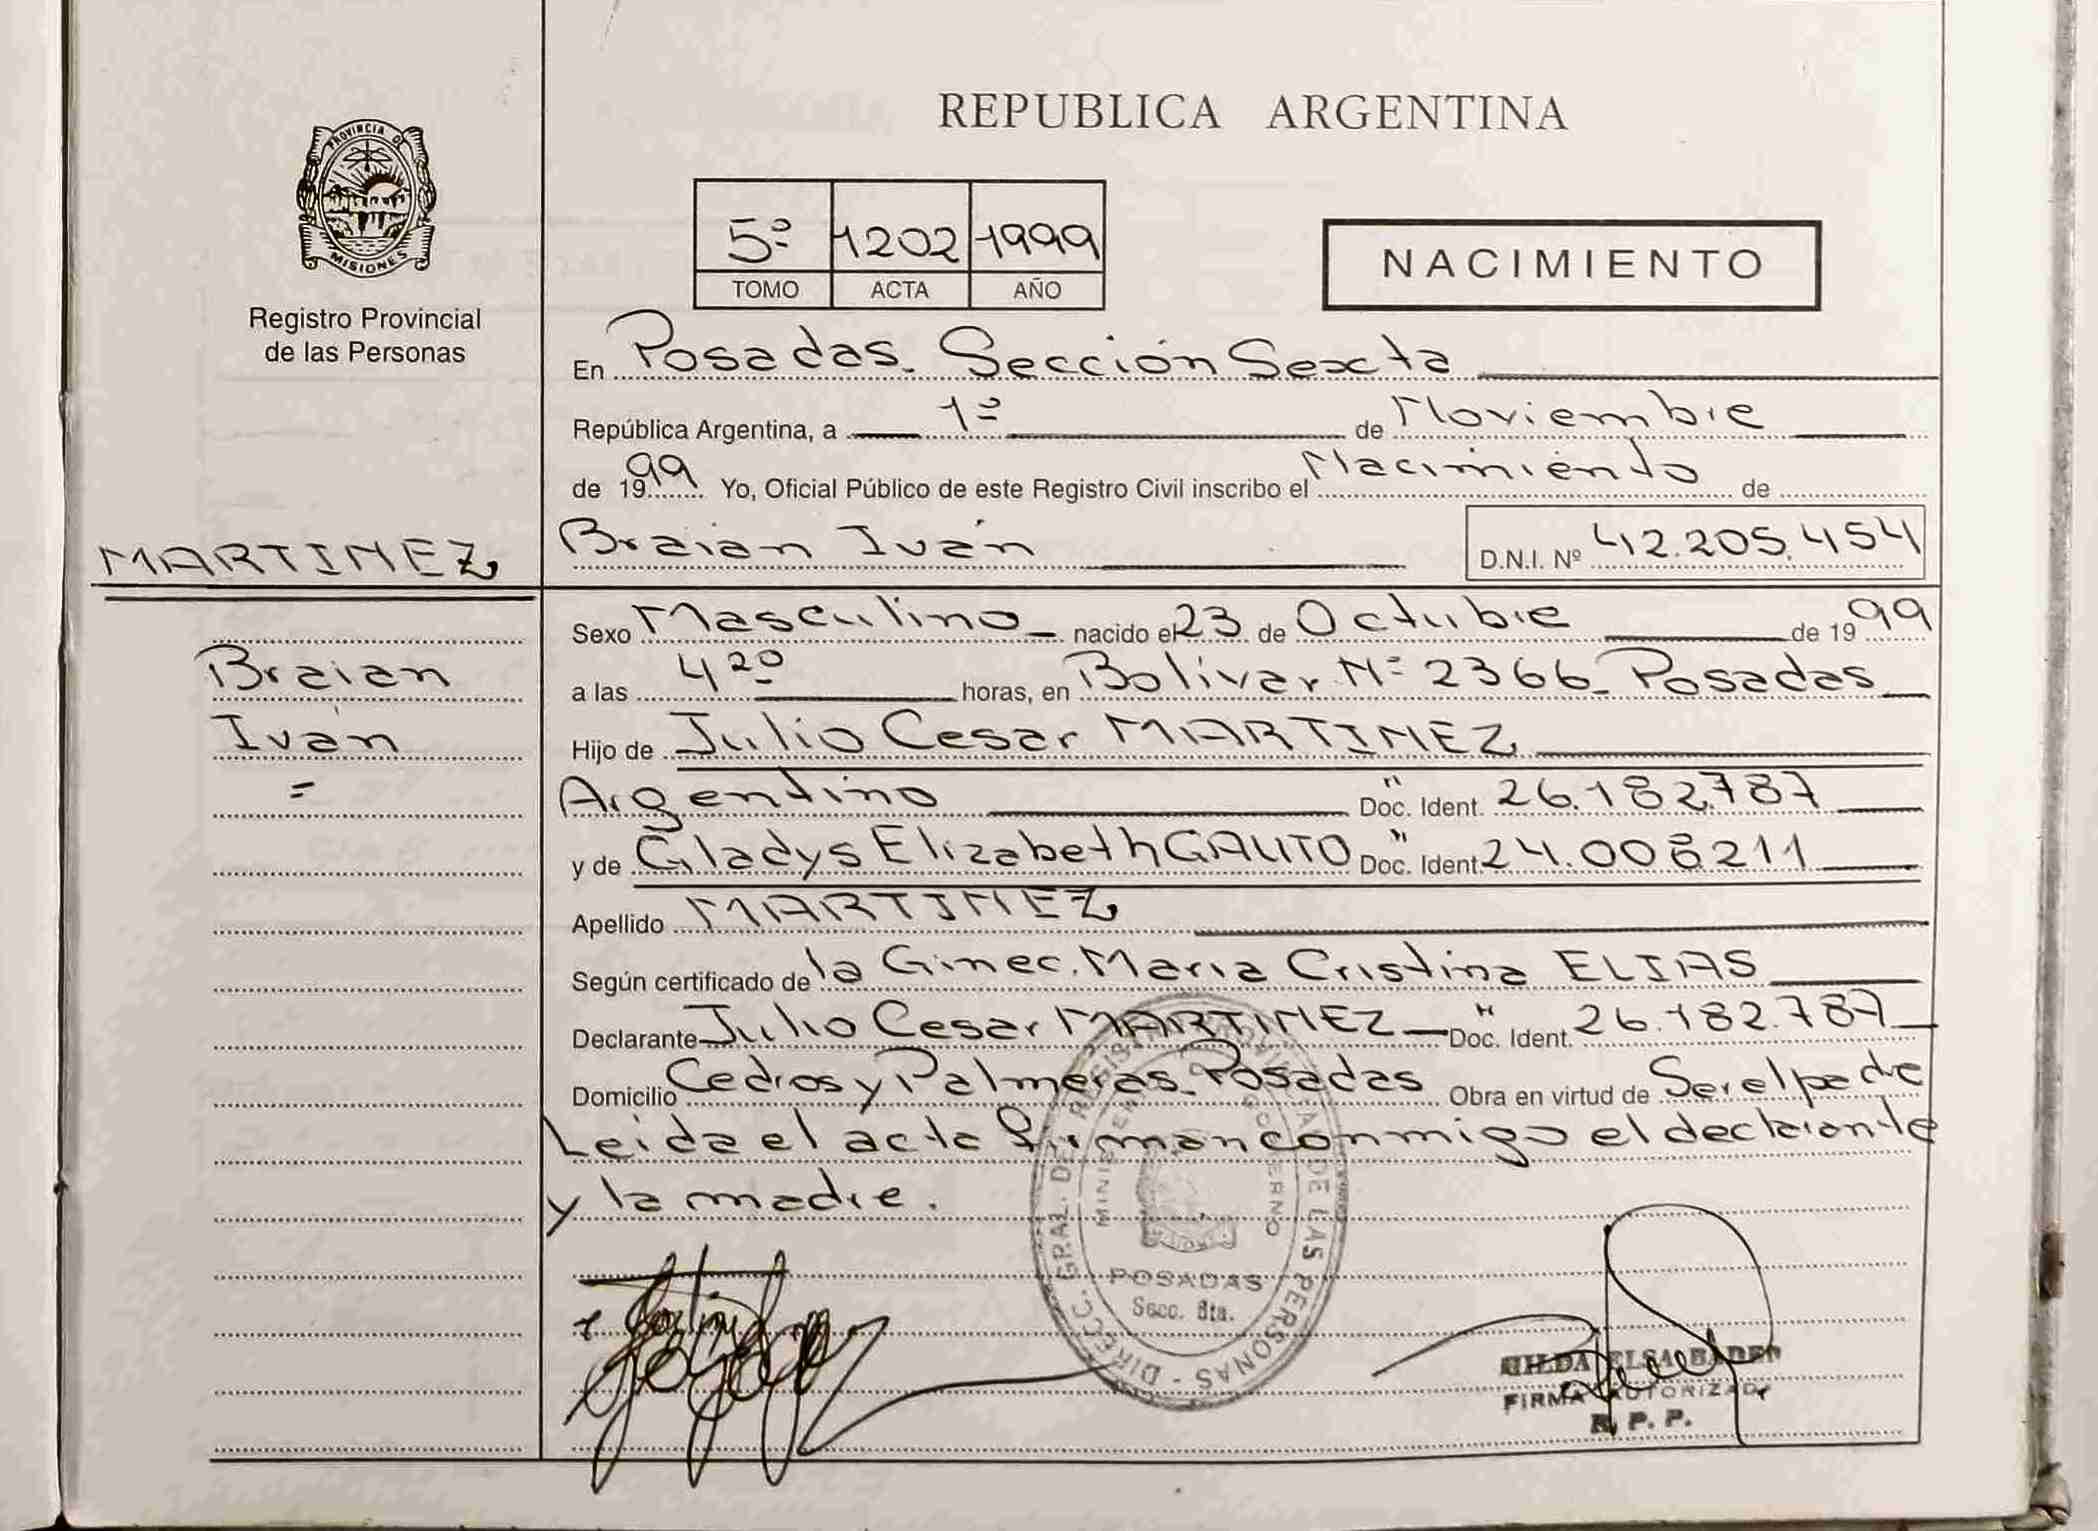 REPUBLICA ARGENTINA
PROVINCIA DE
MISIONES
Registro Provincial
de las Personas
5º 1202 1999
TOMO ACTA AÑO
NACIMIENTO
En Posadas. Sección Sexta
República Argentina, a 1º de Noviembre
de 1999 Yo, Oficial Público de este Registro Civil inscribo el Nacimiento de
MARTINEZ
Braian Iván D.N.I. Nº 42.205.454
Braian
Iván
=
Sexo Masculino nacido el 23 de Octubre de 1999
a las 4 20 horas, en Bolivar Nº 2366 Posadas
Hijo de Julio Cesar MARTINEZ
Argentino Doc. Ident. 26.182.787
y de Gladys Elizabeth GAUTO Doc. Ident. 24.006211
Apellido MARTINEZ
Según certificado de la Ginec. Maria Cristina ELIAS
Declarante Julio Cesar MARTINEZ Doc. Ident. 26.182.787
Domicilio Cedros y Palmeras Posadas Obra en virtud de Ser el padre
Leida el acta firman conmigo el declarante
y la madre.
DIRECC. GRAL. DEL REGISTRO PROVINCIAL DE LAS PERSONAS
MINISTERIO GOBIERNO
POSADAS
Secc. 6ta.
ELSA
FIRMA AUTORIZADA
R. P. P.